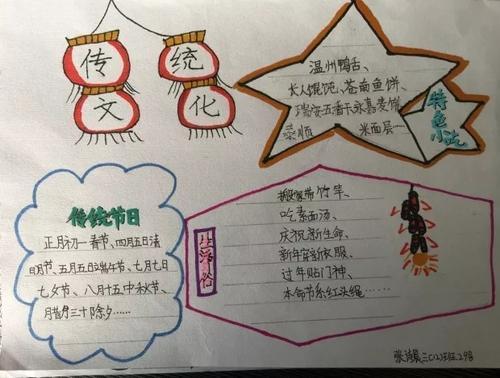 传统
文化
温州鸭舌、
长人馄饨、苍南鱼饼、
瑞安五香干永嘉麦饼
泰顺 米面层…
特色
小吃
传统节日
正月初一春节、四月五日清
明节、五月五日端午节、七月七日
七夕节、八月十五中秋节、
腊月三十除夕……
生活习俗
搬家带竹竿、
吃素面汤、
庆祝新生命、
新年穿新衣服、
过年贴门神、
本命节系红头绳……
三(2)班29号